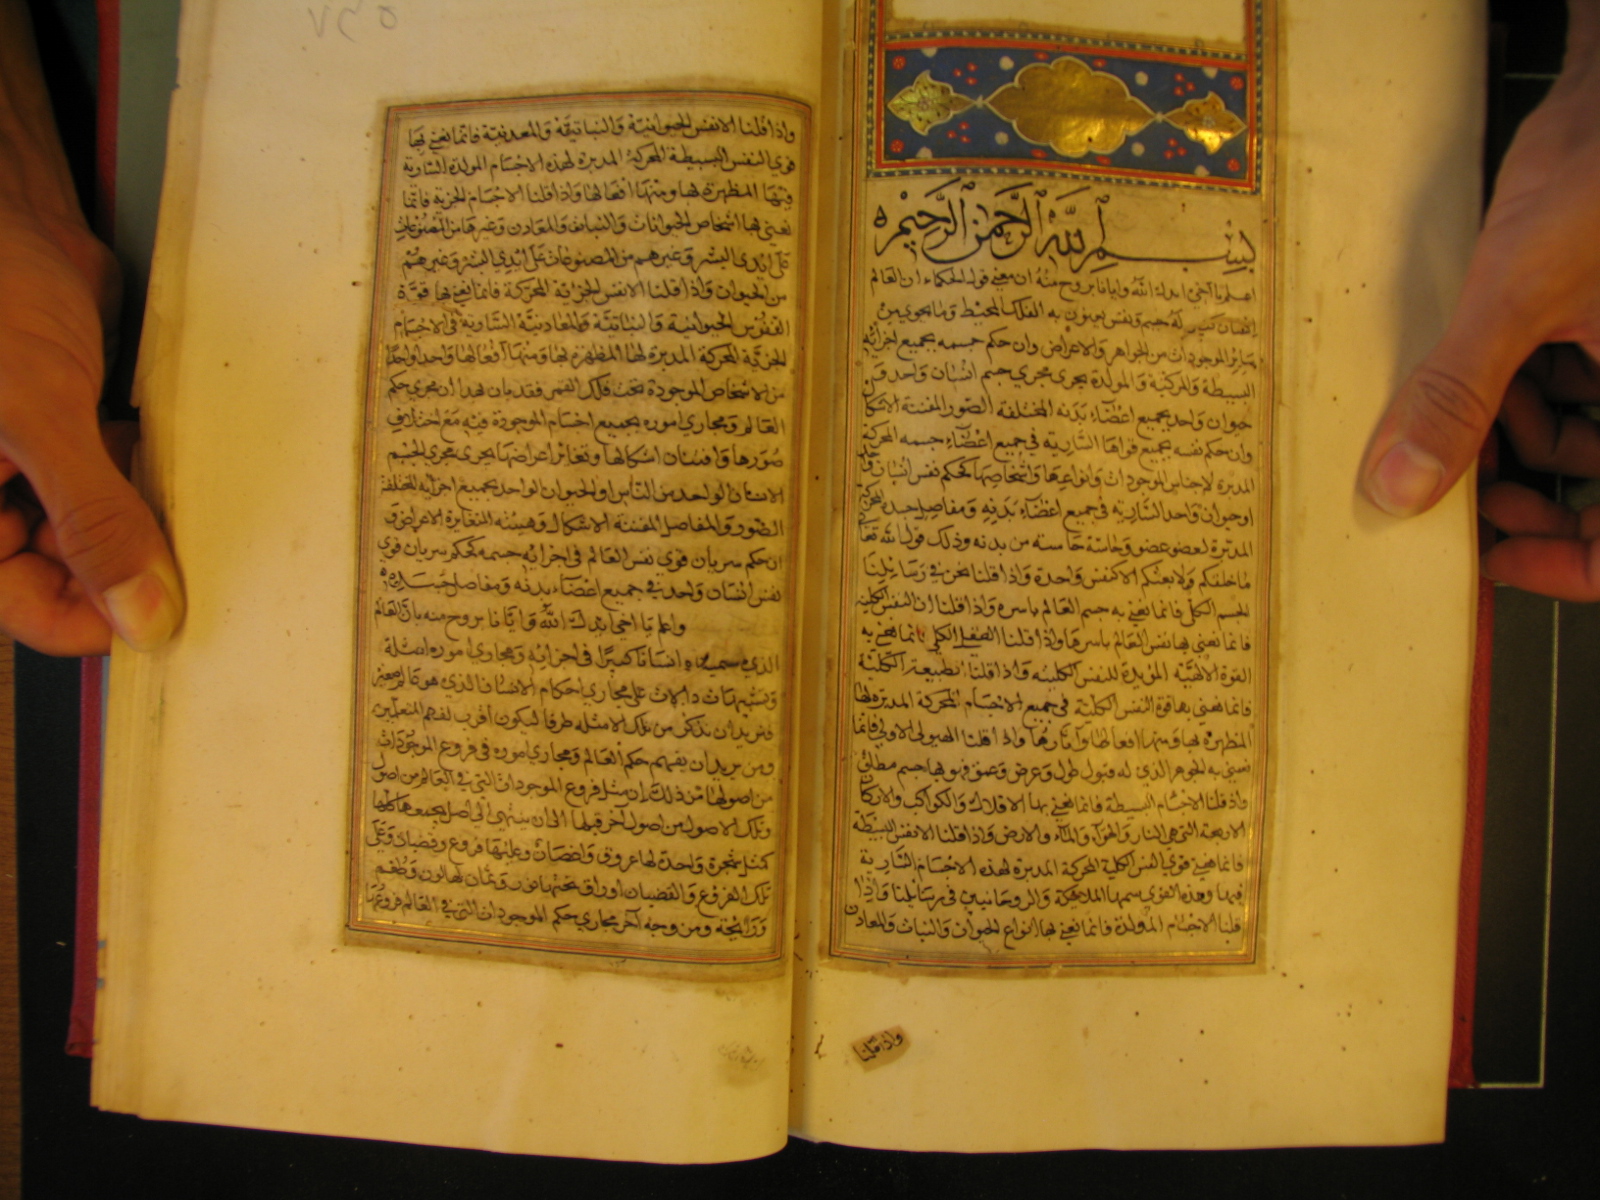 بسم الله الرحمن الرحيم
اعلم يا اخي ايدك الله وايانا بروح منه ان معنى قول الحكماء ان العالم
انسان كبير له جسم ونفس يعنون به الفلك المحيط وما يحوي من
سائر الموجودات من الجواهر والاعراض وان حكم جسمه بجميع اجزائه
البسيطة والمركبة والمولدة يجري مجرى جسم انسان واحد من
حيوان واحد بجميع اعضاء بدنه المختلفة الصور المفننة الاشكال
وان حكم نفسه بجميع قواها السارية في جميع اعضاء جسمه المحركة
المدبرة لاجناس الموجودات وانواعها واشخاصها كحكم نفس انسان واحد
او حيوان واحد السارية في جميع اعضاء بدنه ومفاصل جسده المحركة
المدبرة لعضو عضو وحاسة حاسة من بدنه وذلك قول الله تعا
ما خلقكم ولا بعثكم الا كنفس واحدة واذا قلنا نحن في رسائلنا
الجسم الكل فانما نعني به جسم العالم باسره واذا قلنا النفس الكلية
فانما نعني بها نفس العالم باسرها واذا قلنا العقل الكلي فانما نعني به
القوة الالهية المؤيدة للنفس الكلية واذا قلنا الطبيعة الكلية
فانما نعني بها قوة النفس الكلية في جميع الاجسام المحركة المدبرة لها
المظهرة بها ومنها افعالها وآثارها واذا قلنا الهيولى الاولى فانما
نعني به الجوهر الذي له قبول طول وعرض وعمق فهو بها جسم مطلق
واذ قلنا الاجسام البسيطة فانما نعني بها الافلاك والكواكب والاركان
الاربعة التي هي النار والهوآء والمآء والارض واذا قلنا الانفس البسيطة
فانما نعني قوى النفس الكلية المحركة المدبرة لهذه الاجسام السارية
فيها وهذه القوى سميها الملائكة والروحانيين في رسائلنا واذا
قلنا الاجسام المولدة فانما نعني بها انواع الحيوان والنبات والمعادن
واذا قلنا
واذا قلنا الانفس الحيوانية والنباتية والمعدنية فانما نعني بها
قوى النفس البسيطة المحركة المدبرة لهذه الاجسام المولدة السارية
فيها المظهرة بها ومنها افعالها واذا قلنا الاجسام الجزية فانما
نعني بها اشخاص الحيوانات والنبات والمعادن وغيرها من المصنوعات
على ايدي البشر وغيرهم من المصنوعات على ايدي البشر وغيرهم
من الحيوان واذا قلنا الانفس الجزائية المحركة فانما نعني بها قوة
النفوس الحيوانية والنباتية والمعادنية السارية في الاجسام
الجزئية المحركة المدبرة لها المظهرة بها ومنها افعالها واحدا واحدا
من الاشخاص الموجودة تحت فلك القمر فقد بان بهذا ان مجرى حكم
العالم ومجاري اموره بجميع اجسام الموجودة فيه مع اختلاف
صورها وافتنان اشكالها وتغاير اعراضها يجري مجرى الجسم
الانسان الواحد من الناس او الحيوان الواحد بجميع اجزائه المختلفة
الصور والمفاصل المفننة الاشكال وهيئته المتغايرة الاعراض و
ان حكم سريان قوى نفس العالم في اجزائه جسمه كحكم سريان قوى
نفس انسان واحد في جميع اعضاء بدنه ومفاصل جسده
واعلم يا اخي ايدك الله وايانا بروح منه بان العالم
الذي سميناه انسانا كبيرا في اجزائه ومجاري اموره امثلة
وتشبيهات دالات على مجاري احكام الانسان الذي هو عالم صغير
فنريد ان نذكر من تلك الامثلة طرفا ليكون اقرب لفهم المتعلمين
ومن يريد ان يفهم حكم العالم ومجاري اموره في فروع الموجودات
من اصولها من ذلك ان مثل فروع الموجودات التي في العالم من اصول
وتلك الاصول من اصول آخر قبلها الى ان ينتهي الى اصل يجمعها كلها
كمثل شجرة واحدة لها عروق واغصان وعليها فروع وقضبان وعلى
تلك الفروع والقضبان اوراق تحتها نور وثمار لها لون وطعم
ورائحة ومن وجه آخر مجاري حكم الموجودات التي في العالم فروعها